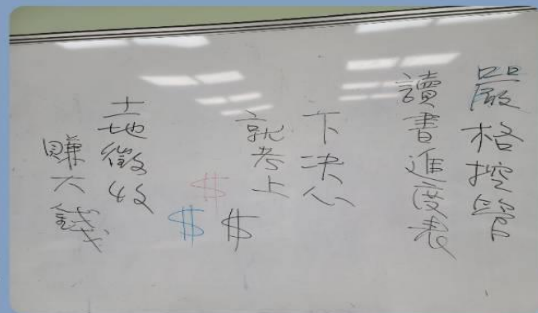 嚴格控管
讀書進度表
下决心
就考上
$
$
$
土地徵收
賺大錢